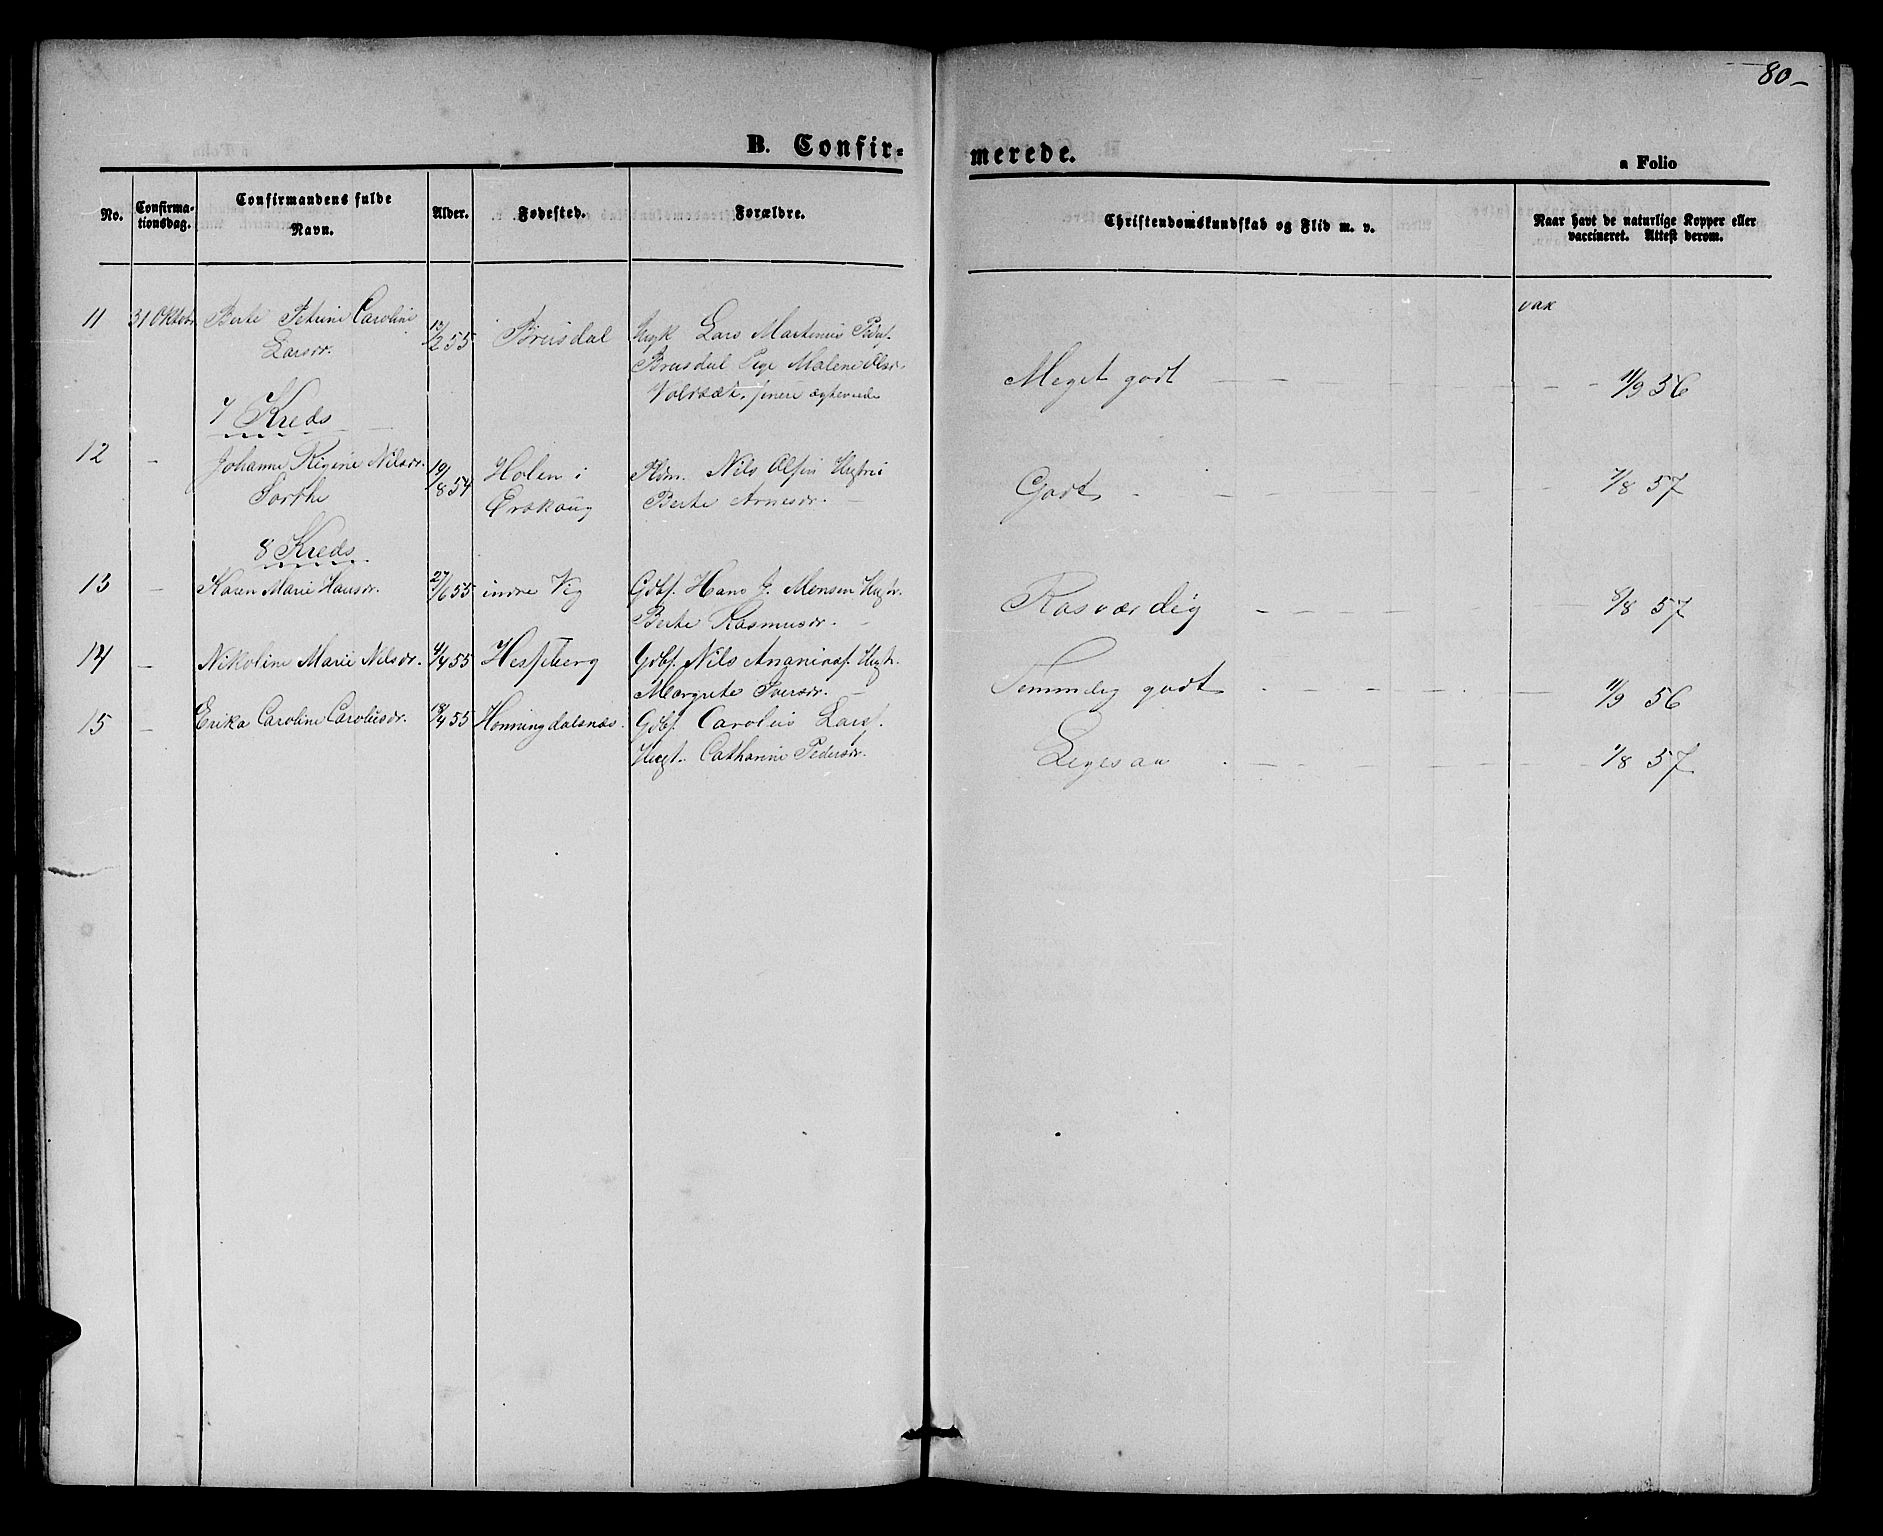 80-
B. Confir-
merede.
a Folio
No.
Confirma-
tionsdag.
Confirmandens fulde
Navn.
Alder.
Fødested.
Forældre.
Christendomskundskab og Flid m. v.
Naar havt de naturlige Kopper eller
vaccineret. Attest derom.
vak
11 31 Oktob Berte Petrine Caroline 12/2 55 Brusdal Ungk Lars Martinus Peders.
Larsdr. Brusdal Pige Malene Olsdr.
Voldsæt, senere ægteviede
Meget godt - - - - 11/9 56
7 Kreds
12 - Johanne Regine Nilsdr. 19/8 54 Holen i Pldm. Nils Olsen Hustru
Sortke Ørskoug Berte Arnesdr. -
Godt - - - - 7/8 57
8 Kreds
13 - Karen Marie Hansdr. 27/6 55 indre Vig Gdbf. Hans J. Monsen Hugtr.
Berte Rasmusdr. -
Rosværdig - - - - 8/8 57
14 - Nikoline Marie Nilsdr. 4/4 55 Hesseberg Gdbf. Nils Ananiasf. Hugtr.
Margrete Iversdr. -
Temmelig godt - - - - 11/9 56
15 - Erika Caroline Carolusdr. 18/4 55 Honningdalsnæs. Gdbf. Carolus Larsf.
Hugt. Catharine Pedersdr.
Ligesaa - - - - 1/8 57